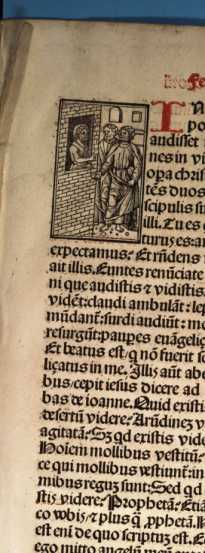 IN
po
audisset
nes in vi
opa chris
tēs duos
scipulis su
illi. Tu es q
turus es: an
expectamus? Et rñdens
ait illis. Euntes renūciate
ni que audistis ⁊ vidistis.
vidēt: claudi ambulāt: lep
mūdant: surdi audiūt: mo
resurgūt: pauꝑes euāgeliç
Et beatus est / q nō fuerit sc
lizatus in me. Illis aūt abe
bus / cepit iesus dicere ad
bas de ioanne. Quid existi
desertū videre? Arūdinez v
agitatā? Sz qd existis vide
Hoiem mollibus vestitū?
ce qui mollibus vestiunt: in
mibus regū sunt: Sed qd
stis videre? Prophetā? Etiā
co vobis / ⁊ plus q̄ ꝓphetā. H
est eni de quo scriptuz est. E
ego mitto angelū